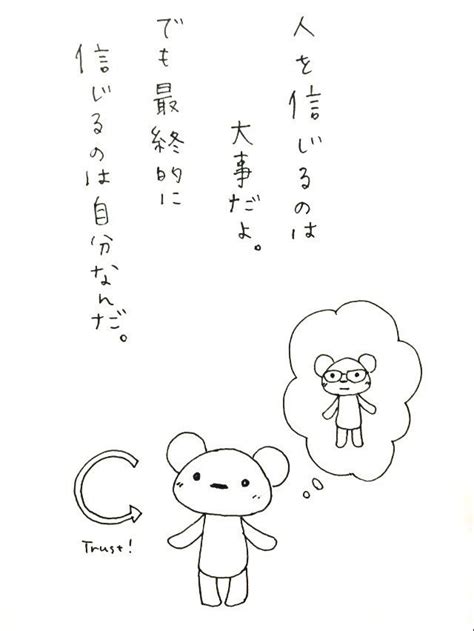 人を信じるのは
大事だよ。
でも最終的に
信じるのは自分なんだ。
Trust!